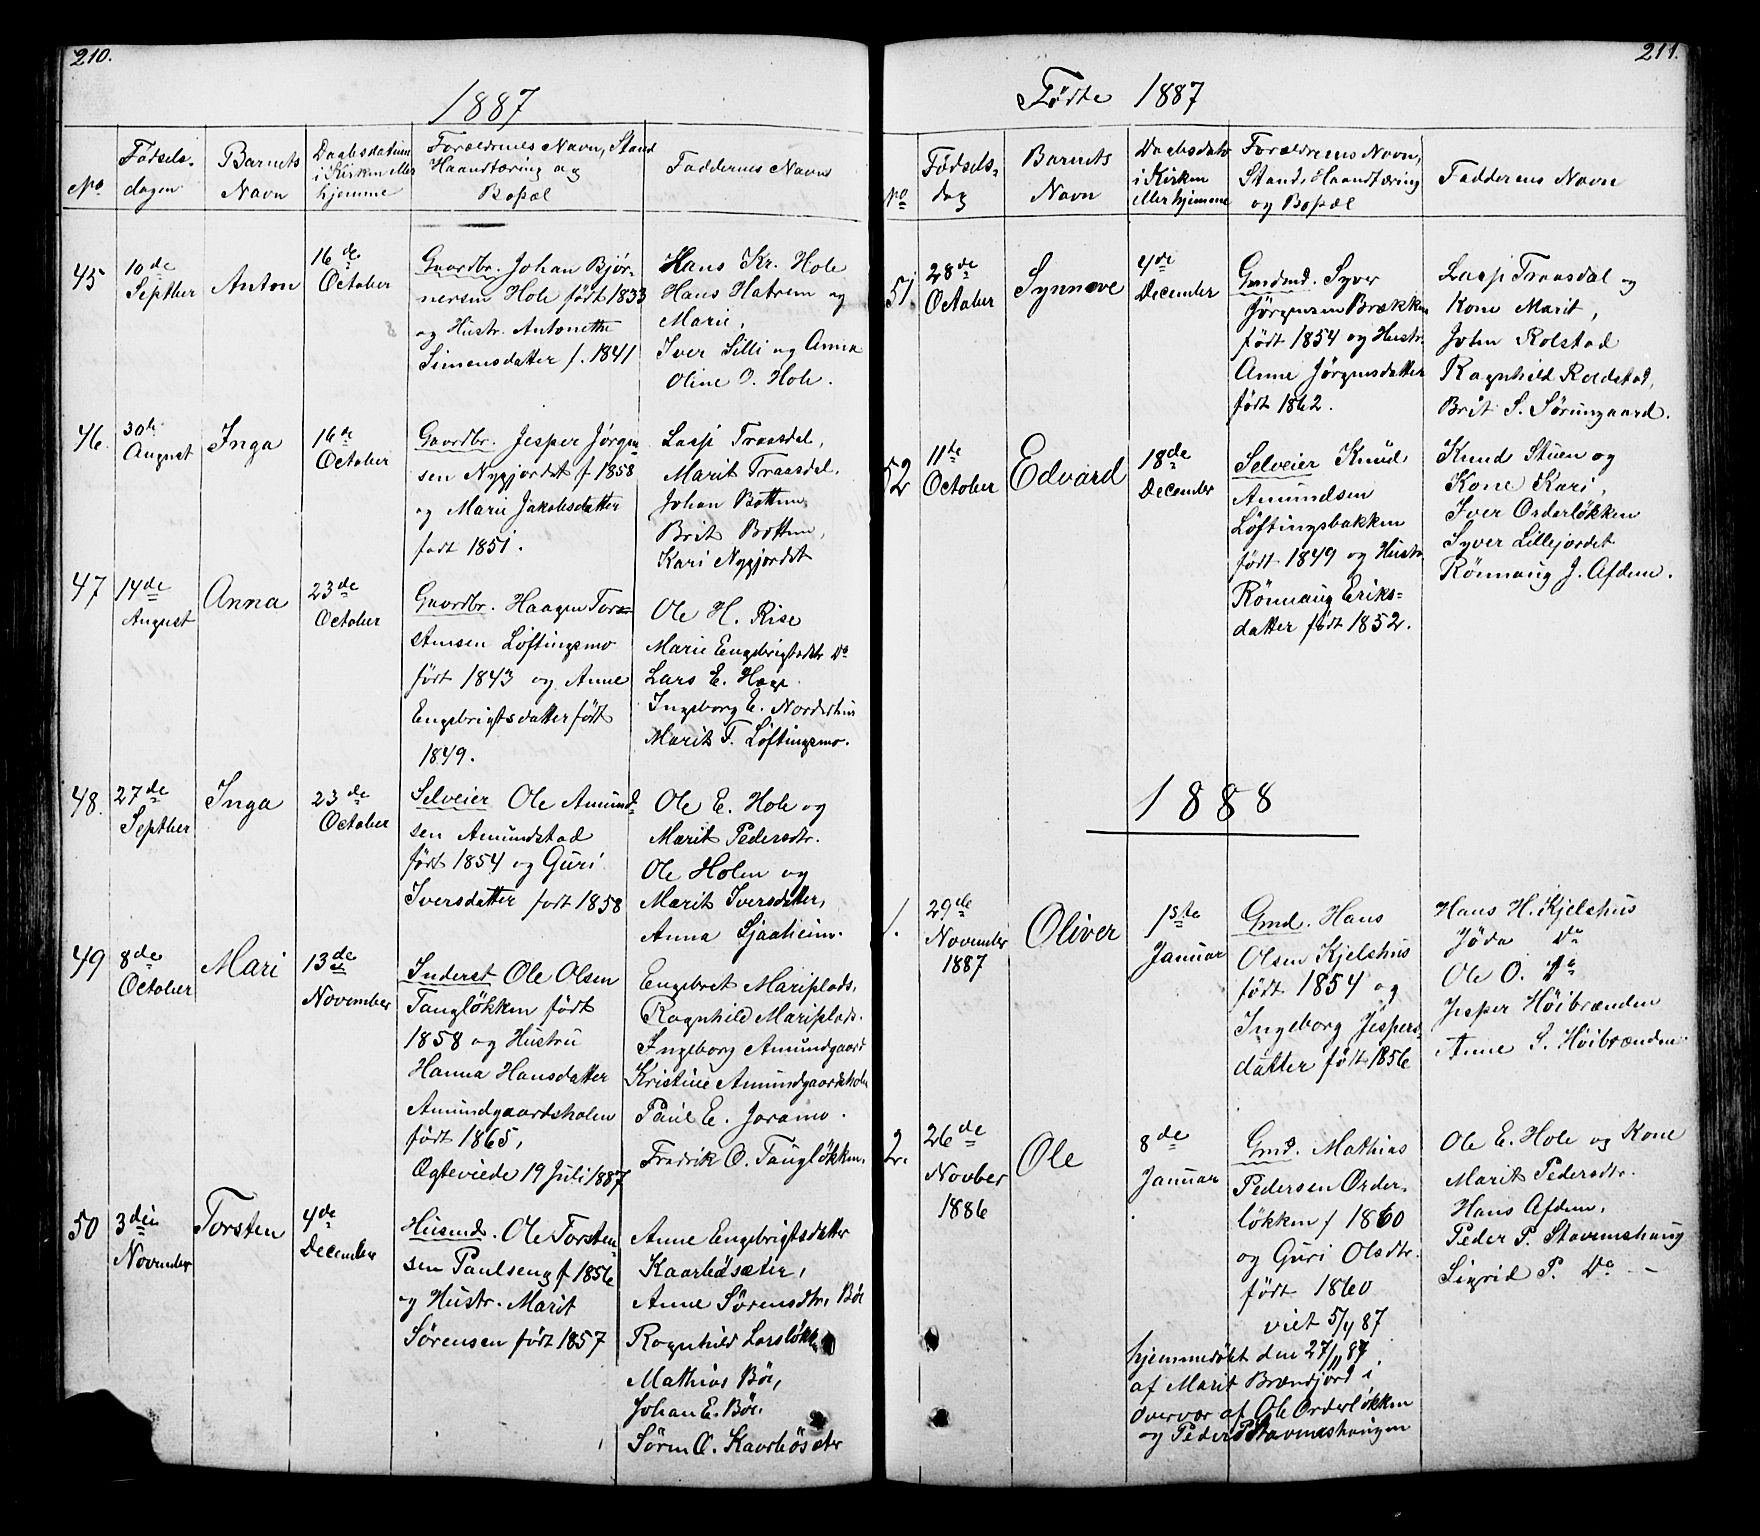 210.
1887
No
Fødsels-
dagen
Barnets
Navn
Daabsdatum
i Kirken eller
hjemme
Forældrenes Navn, Stand
Haandtæring og
Bopæl
Faddernes Navn
45
10de
Septber
Anton
16de
October
Gaardbr. Johan Bjør-
nersen Hole født 1833
og Hustr. Antonette
Simensdatter f. 1841
Hans Kr. Hole
Hans Hatrem og
Marie,
Iver Silli og Anna
Oline O. Hole.
46.
30te
August
Inga
16de
October
Gaardbr. Jesper Jørgen
sen Nygjordet f 1858
og Marie Jakobsdatter
født 1851.
Lasse Traasdal,
Marit Traasdal,
Johan Botten,
Brit Botten,
Kari Nygjordet
47
14de
August
Anna
23de
October
Gaardbr. Haagen Tor
Amsen Løftingsmo
født 1843 og Anne
Engebrigtsdatter født
1849.
Ole H. Rise
Marie Engebrigtsdtr Do
Lars E. Hage
Ingeborg E. Norderhus
Marit T. Løftingsmo.
48.
27de
Septber
Inga
23de
October
Selveier Ole Amund-
sen Amundstad
født 1854 og Guri
Iversdatter født 1858
Ole E. Hole og
Marit Pedersdtr.
Ole Holen og
Marit Iversdatter,
Anna Sjaaheim.
49
8de
October
Mari
13de
November
Inderst Ole Olsen
Taugløkken født
1858 og Hustru
Hanna Hansdatter
Amundgaardsholen
født 1865,
Ægteviede 19 Juli 1887
Engebret Mariplads,
Ragnhild Mariplads.
Ingeborg Amundgaard
Kristine Amundgaardshole
Paul E. Joramo.
Fredrik O. Taugløkken,
50
3die
November
Torsten
4de
December
Husmd. Ole Torsten
sen Paulseng f 1856
og Hustr. Marit
Sørensen født 1857
Anne Engebrigtsdatter
Kaarbøsæter,
Anne Sørensdtr. Bøe
Ragnhild Larsløkk
Mathias Bøe,
Johan E. Bøe.
Søren O. Kaarbøsæter
211.
Fødte 1887
No
Fødsels-
dag
Barnets
Navn
Daabsdato
i Kirken
eller hjemme
Forældrenes Navn,
Stand, Haandtæring
og Bopæl
Faddernes Navn
51.
28de
October
Synnøve
4de
December
Gmdmd. Syver
Jørgensen Brækken
født 1854 og Hustr.
Anne Jørgensdatter
født 1862.
Lasse Traasdal og
Kone Marit,
John Rolstad
Ragnhild Roldstad,
Brit S. Sørumgaard.
52
11te
October
Edvard
18de
December
Selveier Knud
Amundsen
Løftingsbakken
født 1849 og Hustr
Rönnaug Eriks-
datter født 1852.
Knud Stuen og
Kone Kari,
Iver Orderløkken
Syver Lillejordet
Rönnaug J. Afdem.
1888
1.
29de
November
1887
Oliver
1ste
Januar
Gmd. Hans
Olsen Kjelshus
født 1854 og
Ingeborg Jespers-
datter født 1856
Hans H. Kjelshus
Jøda Do
Ole O. Do
Jesper Höibrænden
Anne S. Höibrænden
2.
26de
Novber
1886
Ole
8de
Januar
Gmd. Mathias
Pedersen Order-
løkken f 1860
og Guri Olsdtr.
født 1860
viet 5/4 87
hjemmedøbt den 27/11 87
af Marit Brændjord i
overvær af Ole Orderløkken
og Peder P Stavemshaugen
Ole E. Hole og Kone
Marit Pedersdtr.
Hans Afdem,
Peder P. Stavemshaug
Sigrid P. Do —